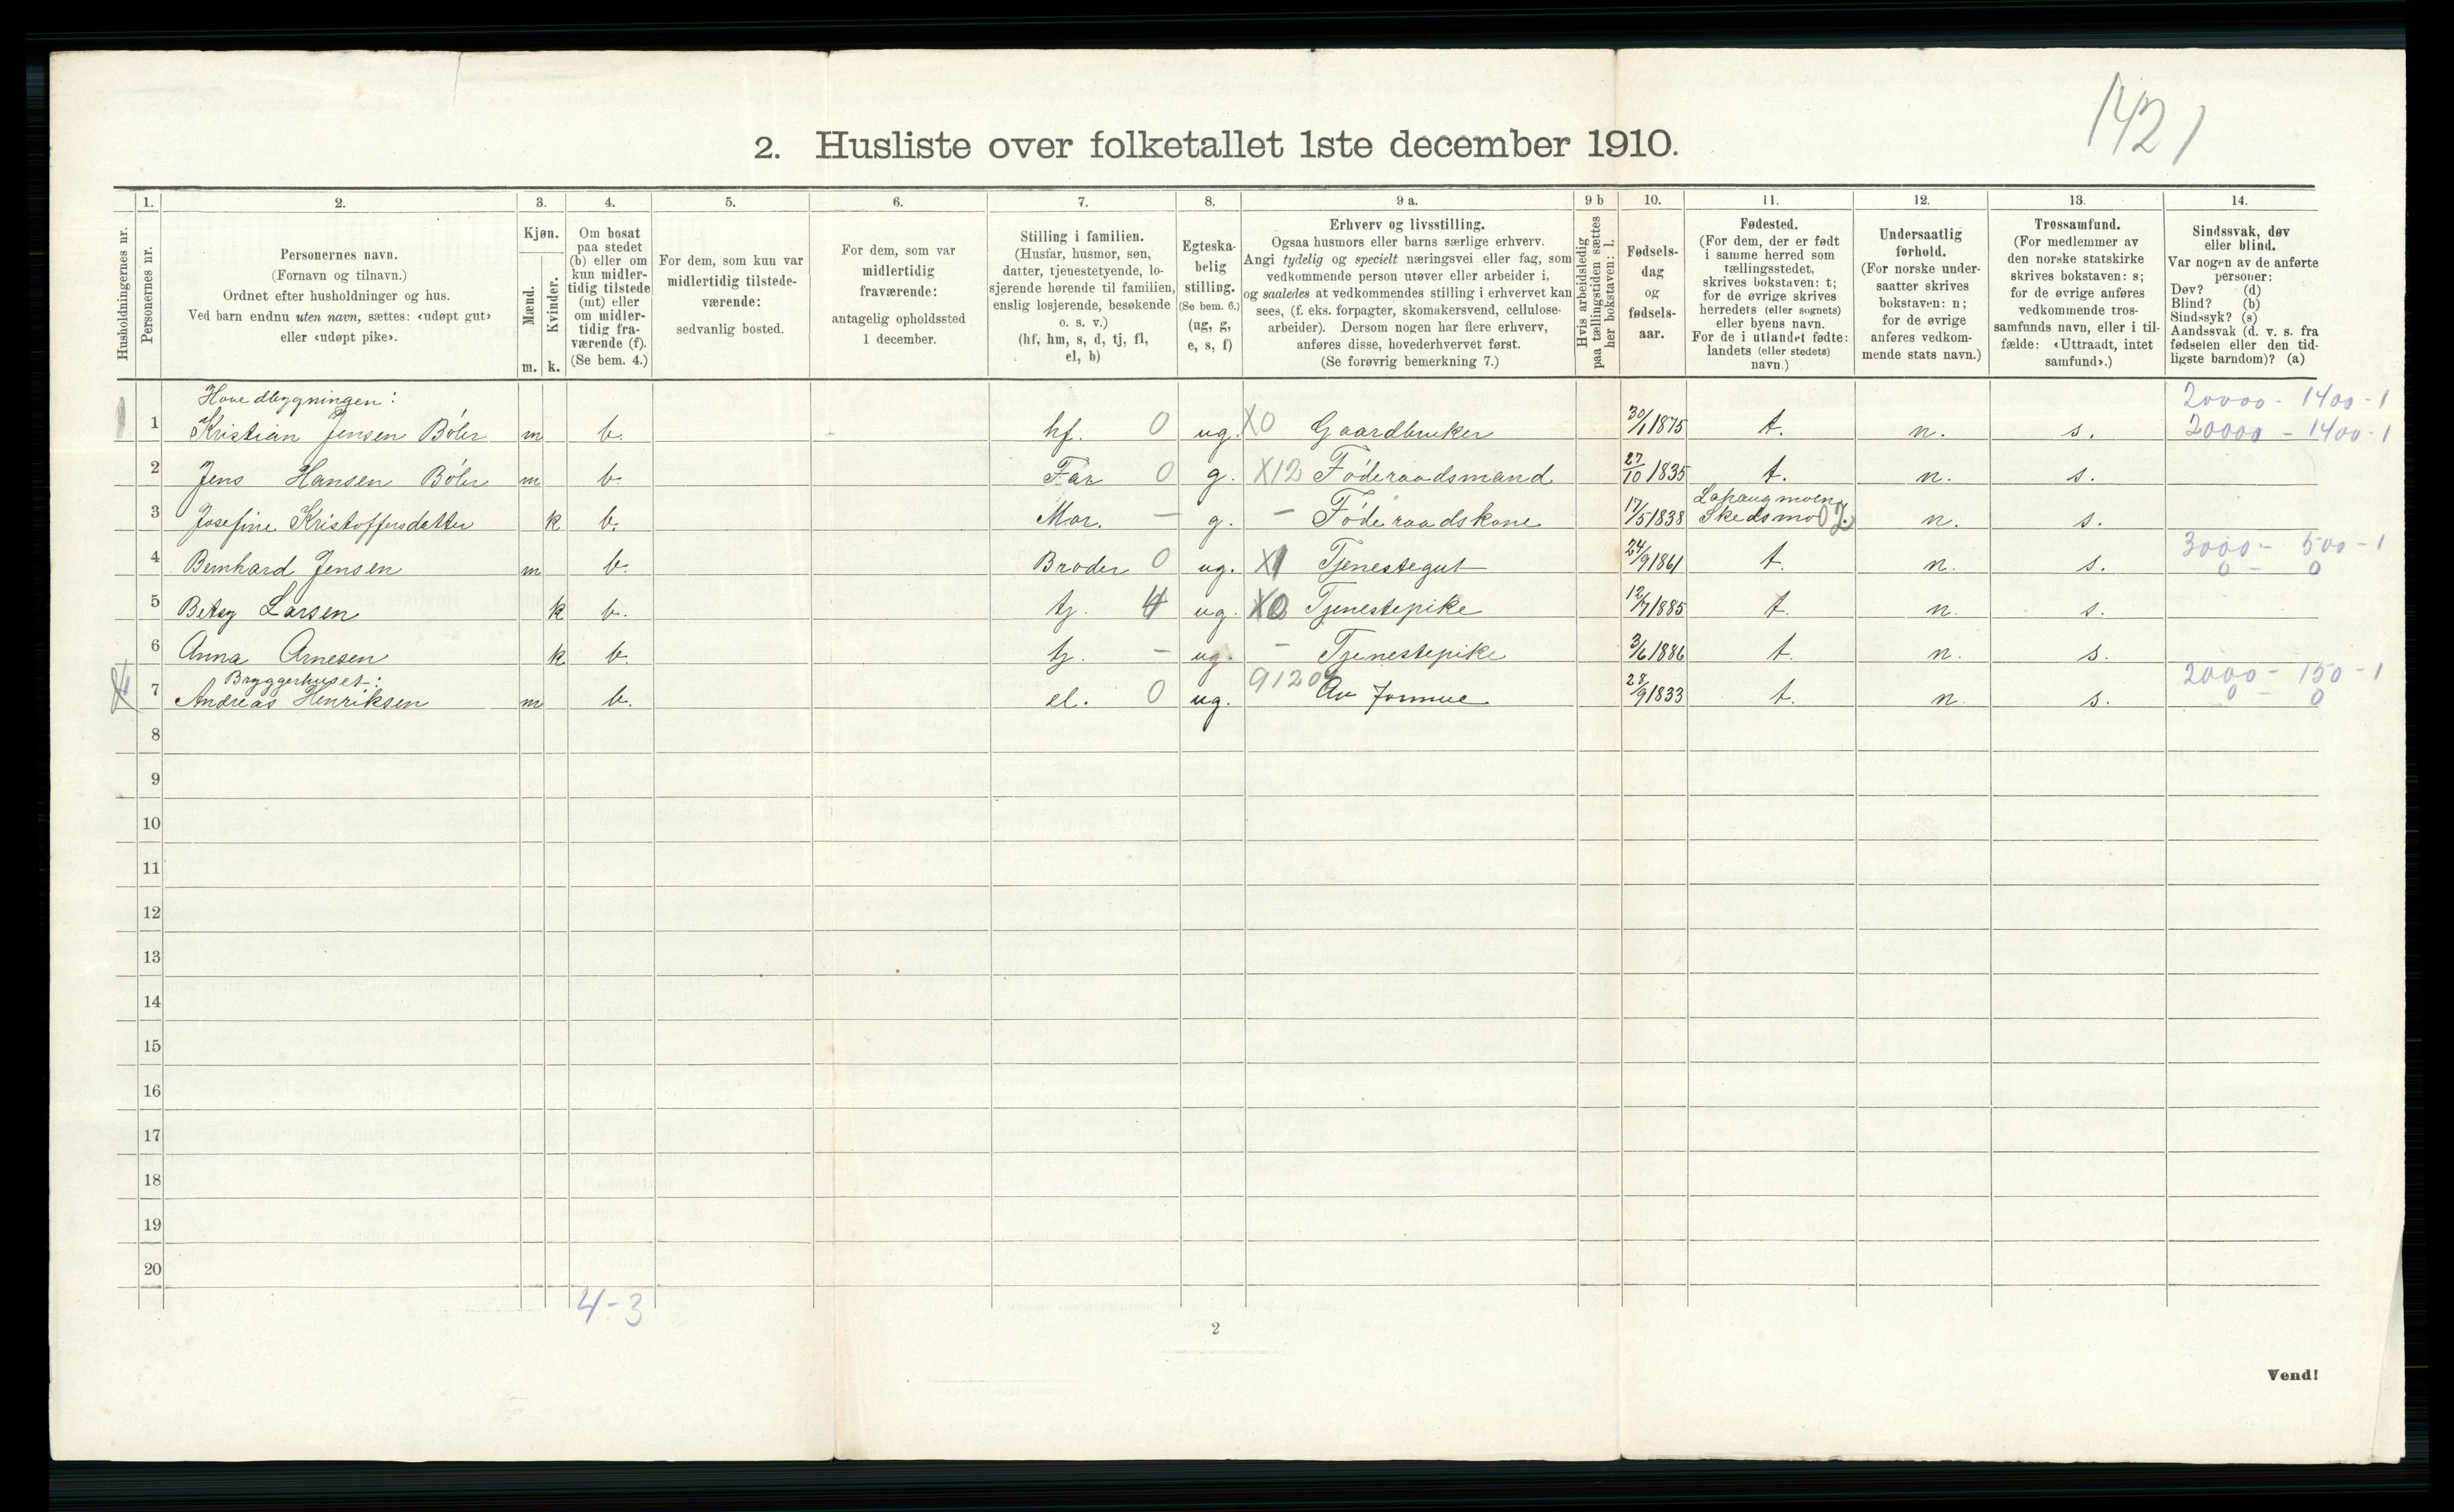 1421
2. Husliste over folketallet 1ste december 1910.
1. 2. 3. 4. 5. 6. 7. 8. 9 a. 9 b 10. 11. 12. 13. 14.
Husholdningernes nr.
Personernes nr.
Personernes navn.
(Fornavn og tilnavn.)
Ordnet efter husholdninger og hus.
Ved barn endnu uten navn, sættes: «udøpt gut»
eller «udøpt pike».
Kjøn.
Mænd.
Kvinder.
m. k.
Om bosat
paa stedet
(b) eller om
kun midler-
tidig tilstede
(mt) eller
om midler-
tidig fra-
værende (f).
(Se bem. 4.)
For dem, som kun var
midlertidig tilstede-
værende:
sedvanlig bosted.
For dem, som var
midlertidig
fraværende:
antagelig opholdssted
1 december.
Stilling i familien.
(Husfar, husmor, søn,
datter, tjenestetyende, lo-
sjerende hørende til familien,
enslig losjerende, besøkende
o. s. v.)
(hf, hm, s, d, tj, fl,
el, b)
Egteska-
belig
stilling.
(Se bem. 6.)
(ug, g,
e, s, f)
Erhverv og livsstilling.
Ogsaa husmors eller barns særlige erhverv.
Angi tydelig og specielt næringsvei eller fag, som
vedkommende person utøver eller arbeider i,
og saaledes at vedkommendes stilling i erhvervet kan
sees, (f. eks. forpagter, skomakersvend, cellulose-
arbeider). Dersom nogen har flere erhverv,
anføres disse, hovederhvervet først.
(Se forøvrig bemerkning 7.)
Hvis arbeidsledig
paa tællingstiden sættes
her bokstaven: l.
Fødsels-
dag
og
fødsels-
aar.
Fødested.
(For dem, der er født
i samme herred som
tællingsstedet,
skrives bokstaven: t;
for de øvrige skrives
herredets (eller sognets)
eller byens navn.
For de i utlandet fødte:
landets (eller stedets)
navn.)
Undersaatlig
forhold.
(For norske under-
saatter skrives
bokstaven: n;
for de øvrige
anføres vedkom-
mende stats navn.)
Trossamfund.
(For medlemmer av
den norske statskirke
skrives bokstaven: s;
for de øvrige anføres
vedkommende tros-
samfunds navn, eller i til-
fælde: «Uttraadt, intet
samfund».)
Sindssvak, døv
eller blind.
Var nogen av de anførte
personer:
Døv? (d)
Blind? (b)
Sindssyk? (s)
Aandssvak (d. v. s. fra
fødselen eller den tid-
ligste barndom)? (a)
Hovedbygningen: 20000 - 1400 - 1
1 Kristian Jensen Böler m b. hf. 0 ug. X0 Gaardbruker 30/1 1875 t. n. s. 20000 - 1400 - 1
2 Jens Hansen Böler m b. Far 0 g. X12 Föderaadsmand 27/10 1835 t. n. s.
Lahaugmoen
3 Josefine Kristoffersdatter k b. Mor. - g. - Föderaadskone 17/5 1838 Skedsmo 02 n. s.
3000 - 500 - 1
4 Bernhard Jensen m b. Broder 0 ug. X1 Tjenestegut 24/9 1861 t. n. s. 0 - 0
5 Betsy Larsen k b. tj. 4 ug. Tjenestepike 12/7 1885 t. n. s.
6 Anna Arnesen k b. tj. - ug. - Tjenestepike 3/6 1886 t. n. s.
Bryggerhuset: 2000 - 150 - 1
7 Andreas Henriksen m b. el. 0 ug. 9120 Av Formue 28/9 1833 t. n. s. 0 - 0
8
9
10
11
12
13
14
15
16
17
18
19
20
4-3
2
Vend!